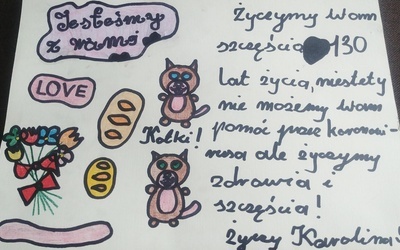 Jesteśmy
z wami
LOVE
Kotki!
Życzymy Wam
szczęścia 130
lat życia, niestety
nie możemy Wam
pomóc przez koronawi-
rusa ale życzymy
zdrowia i
szczęścia!
Życzy Karolina!